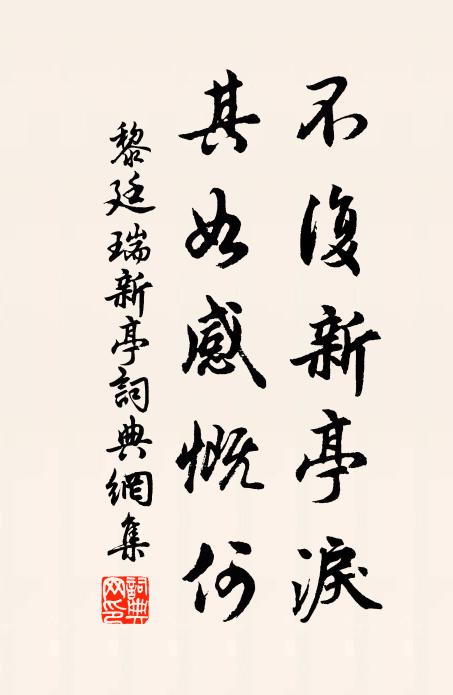 不復新亭淚
其如感慨何
黎廷瑞新亭詞典網集
詞典
网印